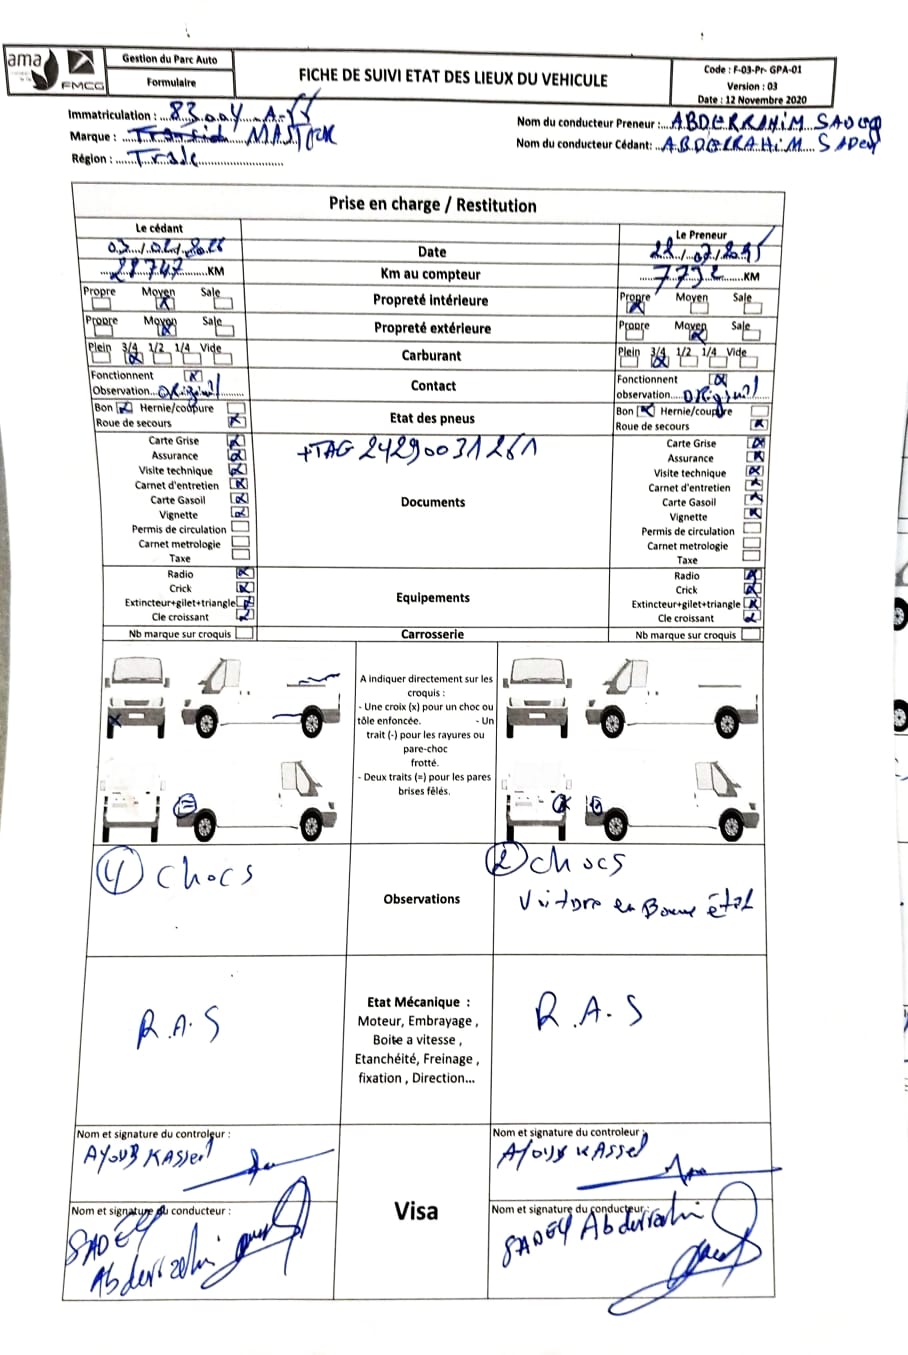 ama
FMCG
Gestion du Parc Auto
Formulaire
FICHE DE SUIVI ETAT DES LIEUX DU VEHICULE
Code : F-03-Pr- GPA-01
Version : 03
Date : 12 Novembre 2020
Immatriculation :
Marque :
Région : Trade
Nom du conducteur Preneur : ABDERRAHIM
Nom du conducteur Cédant: ABDERRAHIM SADEY
Prise en charge / Restitution
Le cédant
Le Preneur
Date
28747 KM
Km au compteur
7732 KM
Propre Moyen Sale
Propreté intérieure
Propre Moyen Sale
Propre Moyen Sale
Propreté extérieure
Propre Moyen Sale
Plein 3/4 1/2 1/4 Vide
Carburant
Plein 3/4 1/2 1/4 Vide
Fonctionnent
Observation... Original
Contact
Fonctionnent
observation.... Original
Bon Hernie/coupure
Roue de secours
Etat des pneus
Bon Hernie/coupure
Roue de secours
Carte Grise
Assurance
Visite technique
Carnet d'entretien
Carte Gasoil
Vignette
Permis de circulation
Carnet metrologie
Taxe
+TAG 24290031261
Documents
Carte Grise
Assurance
Visite technique
Carnet d'entretien
Carte Gasoil
Vignette
Permis de circulation
Carnet metrologie
Taxe
Radio
Crick
Extincteur+gilet+triangle
Cle croissant
Equipements
Radio
Crick
Extincteur+gilet+triangle
Cle croissant
Nb marque sur croquis
Carrosserie
Nb marque sur croquis
A indiquer directement sur les
croquis :
- Une croix (x) pour un choc ou
tôle enfoncée. - Un
trait (-) pour les rayures ou
pare-choc
frotté.
- Deux traits (=) pour les pares
brises fêlés.
4 chocs
Observations
2 chocs
en Bonne état
R.A.S
Etat Mécanique :
Moteur, Embrayage ,
Boite a vitesse ,
Etanchéité, Freinage ,
fixation , Direction...
R.A.S
Nom et signature du controleur :
AYOUB KASSEL
Nom et signature du controleur :
AYOUB KASSEL
Visa
Nom et signature du conducteur :
SADEY
Abderrahim
Nom et signature du conducteur :
SADEY Abderrahim